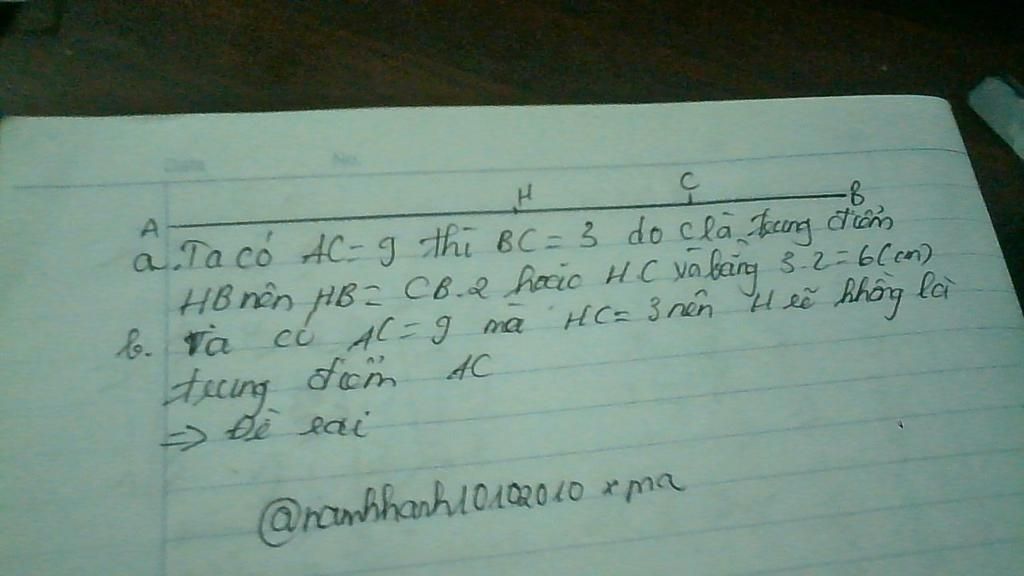 Date No.
H C B
A
a. Ta có AC = 9 thì BC = 3 do C là trung điểm
HB nên HB = CB.2 hoặc HC và bằng 3.2 = 6 (cm)
b. Ta có AC = 9 mà HC = 3 nên H sẽ không là
trung điểm AC
=> Đề sai
@namhhanh10102010 xma